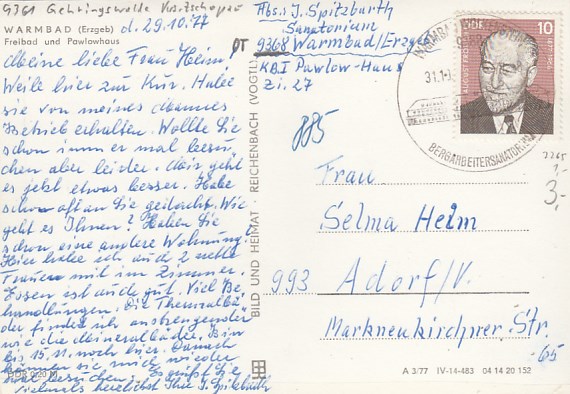 9361 Gehringswalde
WARMBAD (Erzgeb)
Freibad und Pawlowhaus
d. 29.10.77
Meine liebe Frau Heim!
Weile hier zur Kur. Habe
sie von meines Mannes
Betrieb erhalten. Wollte Sie
schon immer mal besu-
chen aber leider. Mir geht
es jetzt etwas besser. Habe
schon oft an Sie gedacht. Wie
geht es Ihnen? Haben Sie
schon eine andere Wohnung?
Hier habe ich auch 2 nette
Frauen mit im Zimmer.
Essen ist auch gut. Viel Be-
handlungen. Die Thermalbä-
der finde ich anstrengender
wie die Mineralbäder. Bin
bis 15.11. noch hier. Danach
können sie mich wieder
mal besuchen. Es grüßt Sie
vielmals herzlichst Ihre J. Spitzbarth
BILD UND HEIMAT REICHENBACH (VOGTL)
Abs.: J. Spitzbarth
Sanatorium
OT 9368 Warmbad/Erzgeb
KBI Pawlow-Haus
Zi. 27
DDR
10
BERGARBEITERSANATORIUM
885
3265
1,-
3,-
Frau
Selma Heim
993 Adorf/V.
Markneukirchner Str.
65
A 3/77 IV-14-483 04 14 20 152